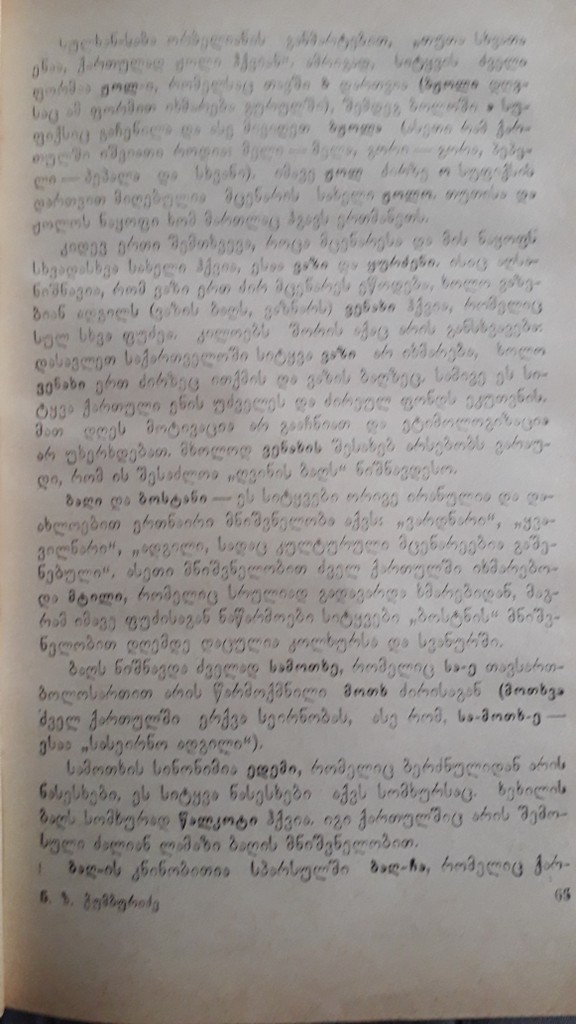 სულხან-საბა ორბელიანის განმარტებით, „თუთა სხვათა
ენაა, ქართულად ჟოლი ჰქვიან“. ამრიგად, სიტყვის ძველი
ფორმაა ჟოლ-ი, რომელსაც თავში ბ დართვია (ბჟოლი დღე-
საც ამ ფორმით იხმარება გურულში), შემდეგ ბოლოში ა სუ-
ფიქსიც გაჩენილა და ასე მივიღეთ ბჟოლა (ასეთი რამ ქარ-
თულში იშვიათი როდია: მელი — მელა, გორი — გორა, პეპე-
ლი — პეპელა და სხვანი). იმავე ჟოლ ძირზე ო სუფიქსის
დართვით მიღებულია მცენარის სახელი ჟოლო. თუთისა და
ჟოლოს ნაყოფი ხომ მართლაც ჰგავს ერთმანეთს.
კიდევ ერთი შემთხვევა, როცა მცენარესა და მის ნაყოფს
სხვადასხვა სახელი ჰქვია, ესაა ვაზი და ყურძენი. ისიც აღსა-
ნიშნავია, რომ ვაზი ერთ ძირ მცენარეს ეწოდება, ხოლო ვაზე-
ბიან ადგილს (ვაზის ბაღს, ვაზნარს) ვენახი ჰქვია, რომელიც
სულ სხვა ფუძეა. კილოებს შორის აქაც არის განსხვავება:
დასავლეთ საქართველოში სიტყვა ვაზი არ იხმარება, ხოლო
ვენახი ერთ ძირზეც ითქმის და ვაზის ბაღზეც. სამივე ეს სი-
ტყვა ქართული ენის უძველეს და ძირეულ ფონდს ეკუთვნის.
მათ დღეს მოტივაცია არ გააჩნიათ და ეტიმოლოგიზაცია
არ უხერხდებათ. მხოლოდ ვენახის შესახებ არსებობს ვარაუ-
დი, რომ ის შესაძლოა „ღვინის ბაღს“ ნიშნავდესო.
ბაღი და ბოსტანი — ეს სიტყვები ორივე ირანულია და და-
ახლოებით ერთნაირი მნიშვნელობა აქვს: „ვარდნარი“, „ყვა-
ვილნარი“, „ადგილი, სადაც კულტურული მცენარეებია გაშე-
ნებული“. ასეთი მნიშვნელობით ძველ ქართულში იხმარებო-
და მტილი, რომელიც სრულიად გადავარდა ხმარებიდან, მაგ-
რამ იმავე ფუძისაგან ნაწარმოები სიტყვები „ბოსტნის“ მნიშვ-
ნელობით დღემდე დაცულია კოლხურსა და სვანურში.
ბაღს ნიშნავდა ძველად სამოთხე, რომელიც სა-ე თავსართ-
ბოლოსართით არის წარმოქმნილი მოთხ ძირისაგან (მოთხვა
ძველ ქართულში ერქვა სეირნობას, ასე რომ, სა-მოთხ-ე —
ესაა „სასეირნო ადგილი“).
სამოთხის სინონიმია ედემი, რომელიც ბერძნულიდან არის
ნასესხები. ეს სიტყვა ნასესხები აქვს სომხურსაც. ხეხილის
ბაღს სომხურად წალკოტი ჰქვია. იგი ქართულშიც არის შემო-
სული ძალიან ლამაზი ბაღის მნიშვნელობით.
ბაღ-ის კნინობითია სპარსულში ბაღ-ჩა, რომელიც ქარ-
5. ზ. ჭუმბურიძე
65